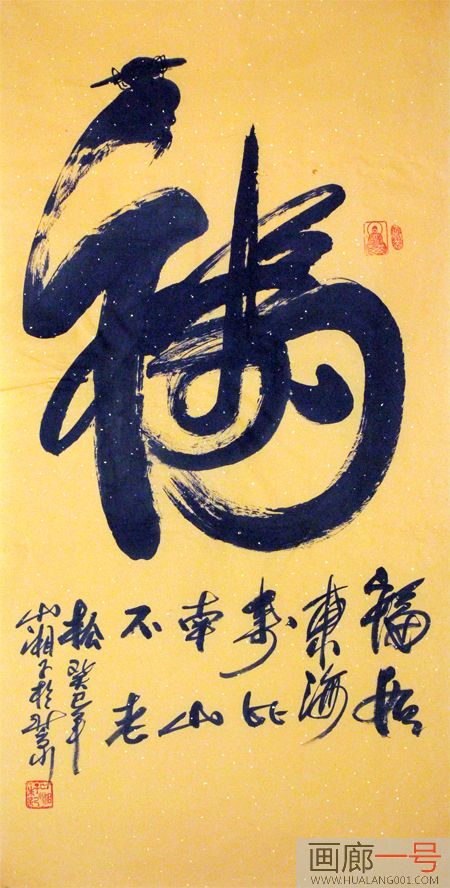 福
福如
東海
寿比
南山
不老
松 癸巳年
画廊一号
WWW.HUALANG001.COM